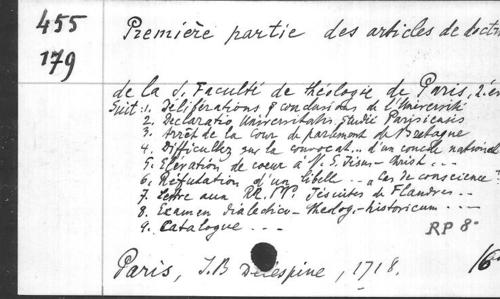 455
179
Première partie des articles de doctri
de la S. Faculté de théologie de Paris, 2. en
Suit: 1. Délibérations & conclusions de l'Université
2. Declaratio Universitatis Studii Parisiensis
3. Arrêt de la Cour de parlement de Bretagne
4. Difficultez sur la convocat... d'un concile national
5. Elévation de coeur à N. S. Jesus-Christ ...
6. Réfutation d'un libelle .. „Cas de conscience"
7. Lettre aux RR. PP. Jésuites de Flandres ..
8. Examen dialectico-theolog-historicum ...
9. Catalogue ...
RP 8°
Paris, J.B Delespine, 1718.
16